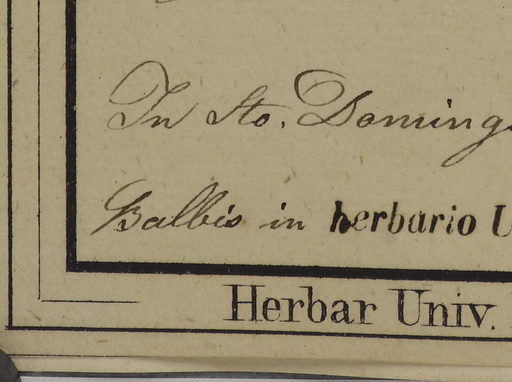 In Sto. Doming
Balbis in herbario U
Herbar Univ.